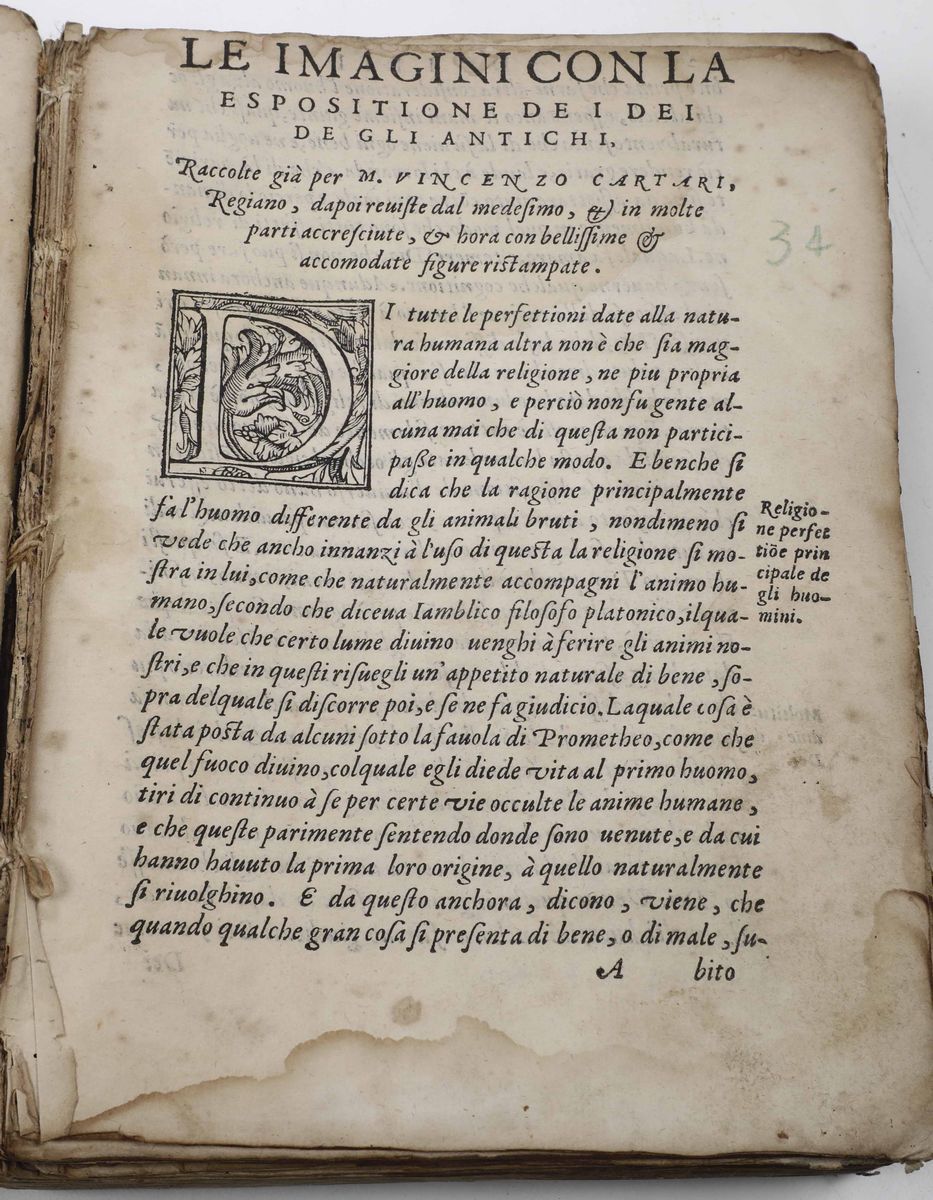 LE IMAGINI CON LA
ESPOSITIONE DE I DEI
DE GLI ANTICHI,
Raccolte già per M. VINCENZO CARTARI,
Regiano, dapoi reuiſte dal medeſimo, & in molte
parti accreſciute, & hora con belliſſime &
accomodate figure riſtampate.
34
DI tutte le perfettioni date alla natu-
ra humana altra non è che ſia mag-
giore della religione, ne piu propria
all'huomo, e perciò non fu gente al-
cuna mai che di queſta non partici-
paße in qualche modo. E benche ſi
dica che la ragione principalmente
fa l'huomo differente da gli animali bruti, nondimeno ſi
vede che ancho innanzi à l'uſo di queſta la religione ſi mo-
ſtra in lui, come che naturalmente accompagni l'animo hu-
mano, ſecondo che diceua Iamblico filoſofo platonico, ilqua-
le vuole che certo lume diuino uenghi à ferire gli animi no-
ſtri, e che in queſti riſuegli un'appetito naturale di bene, ſo-
pra delquale ſi diſcorre poi, e ſe ne fa giudicio. Laquale coſa è
ſtata poſta da alcuni ſotto la fauola di Prometheo, come che
quel fuoco diuino, colquale egli diede vita al primo huomo,
tiri di continuo à ſe per certe vie occulte le anime humane,
e che queſte parimente ſentendo donde ſono uenute, e da cui
hanno hauuto la prima loro origine, à quello naturalmente
ſi riuolghino. E da queſto anchora, dicono, viene, che
quando qualche gran coſa ſi preſenta di bene, o di male, ſu-
A bito
Religio-
ne perfet
tiõe prin
cipale de
gli huo-
mini.